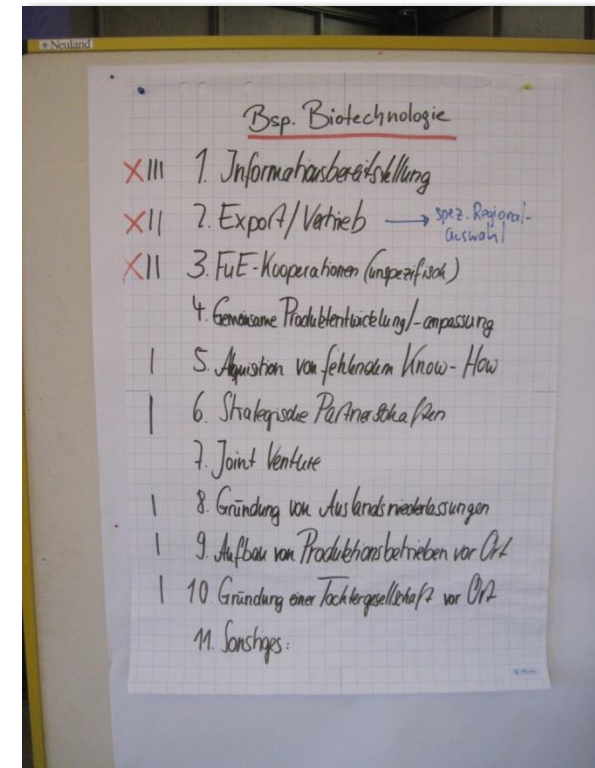 Neuland
Bsp. Biotechnologie
XIII 1. Informationsbereitstellung
XII 2. Export/Vertrieb → spez. Regional-
auswahl
XII 3. FuE-Kooperationen (unspezifisch)
4. Gemeinsame Produktentwicklung/-anpassung
I 5. Aquisition von fehlendem Know-How
I 6. Strategische Partnerschaften
7. Joint Venture
I 8. Gründung von Auslandsniederlassungen
I 9. Aufbau von Produktionsbetrieben vor Ort
I 10. Gründung einer Tochtergesellschaft vor Ort
11. Sonstiges: